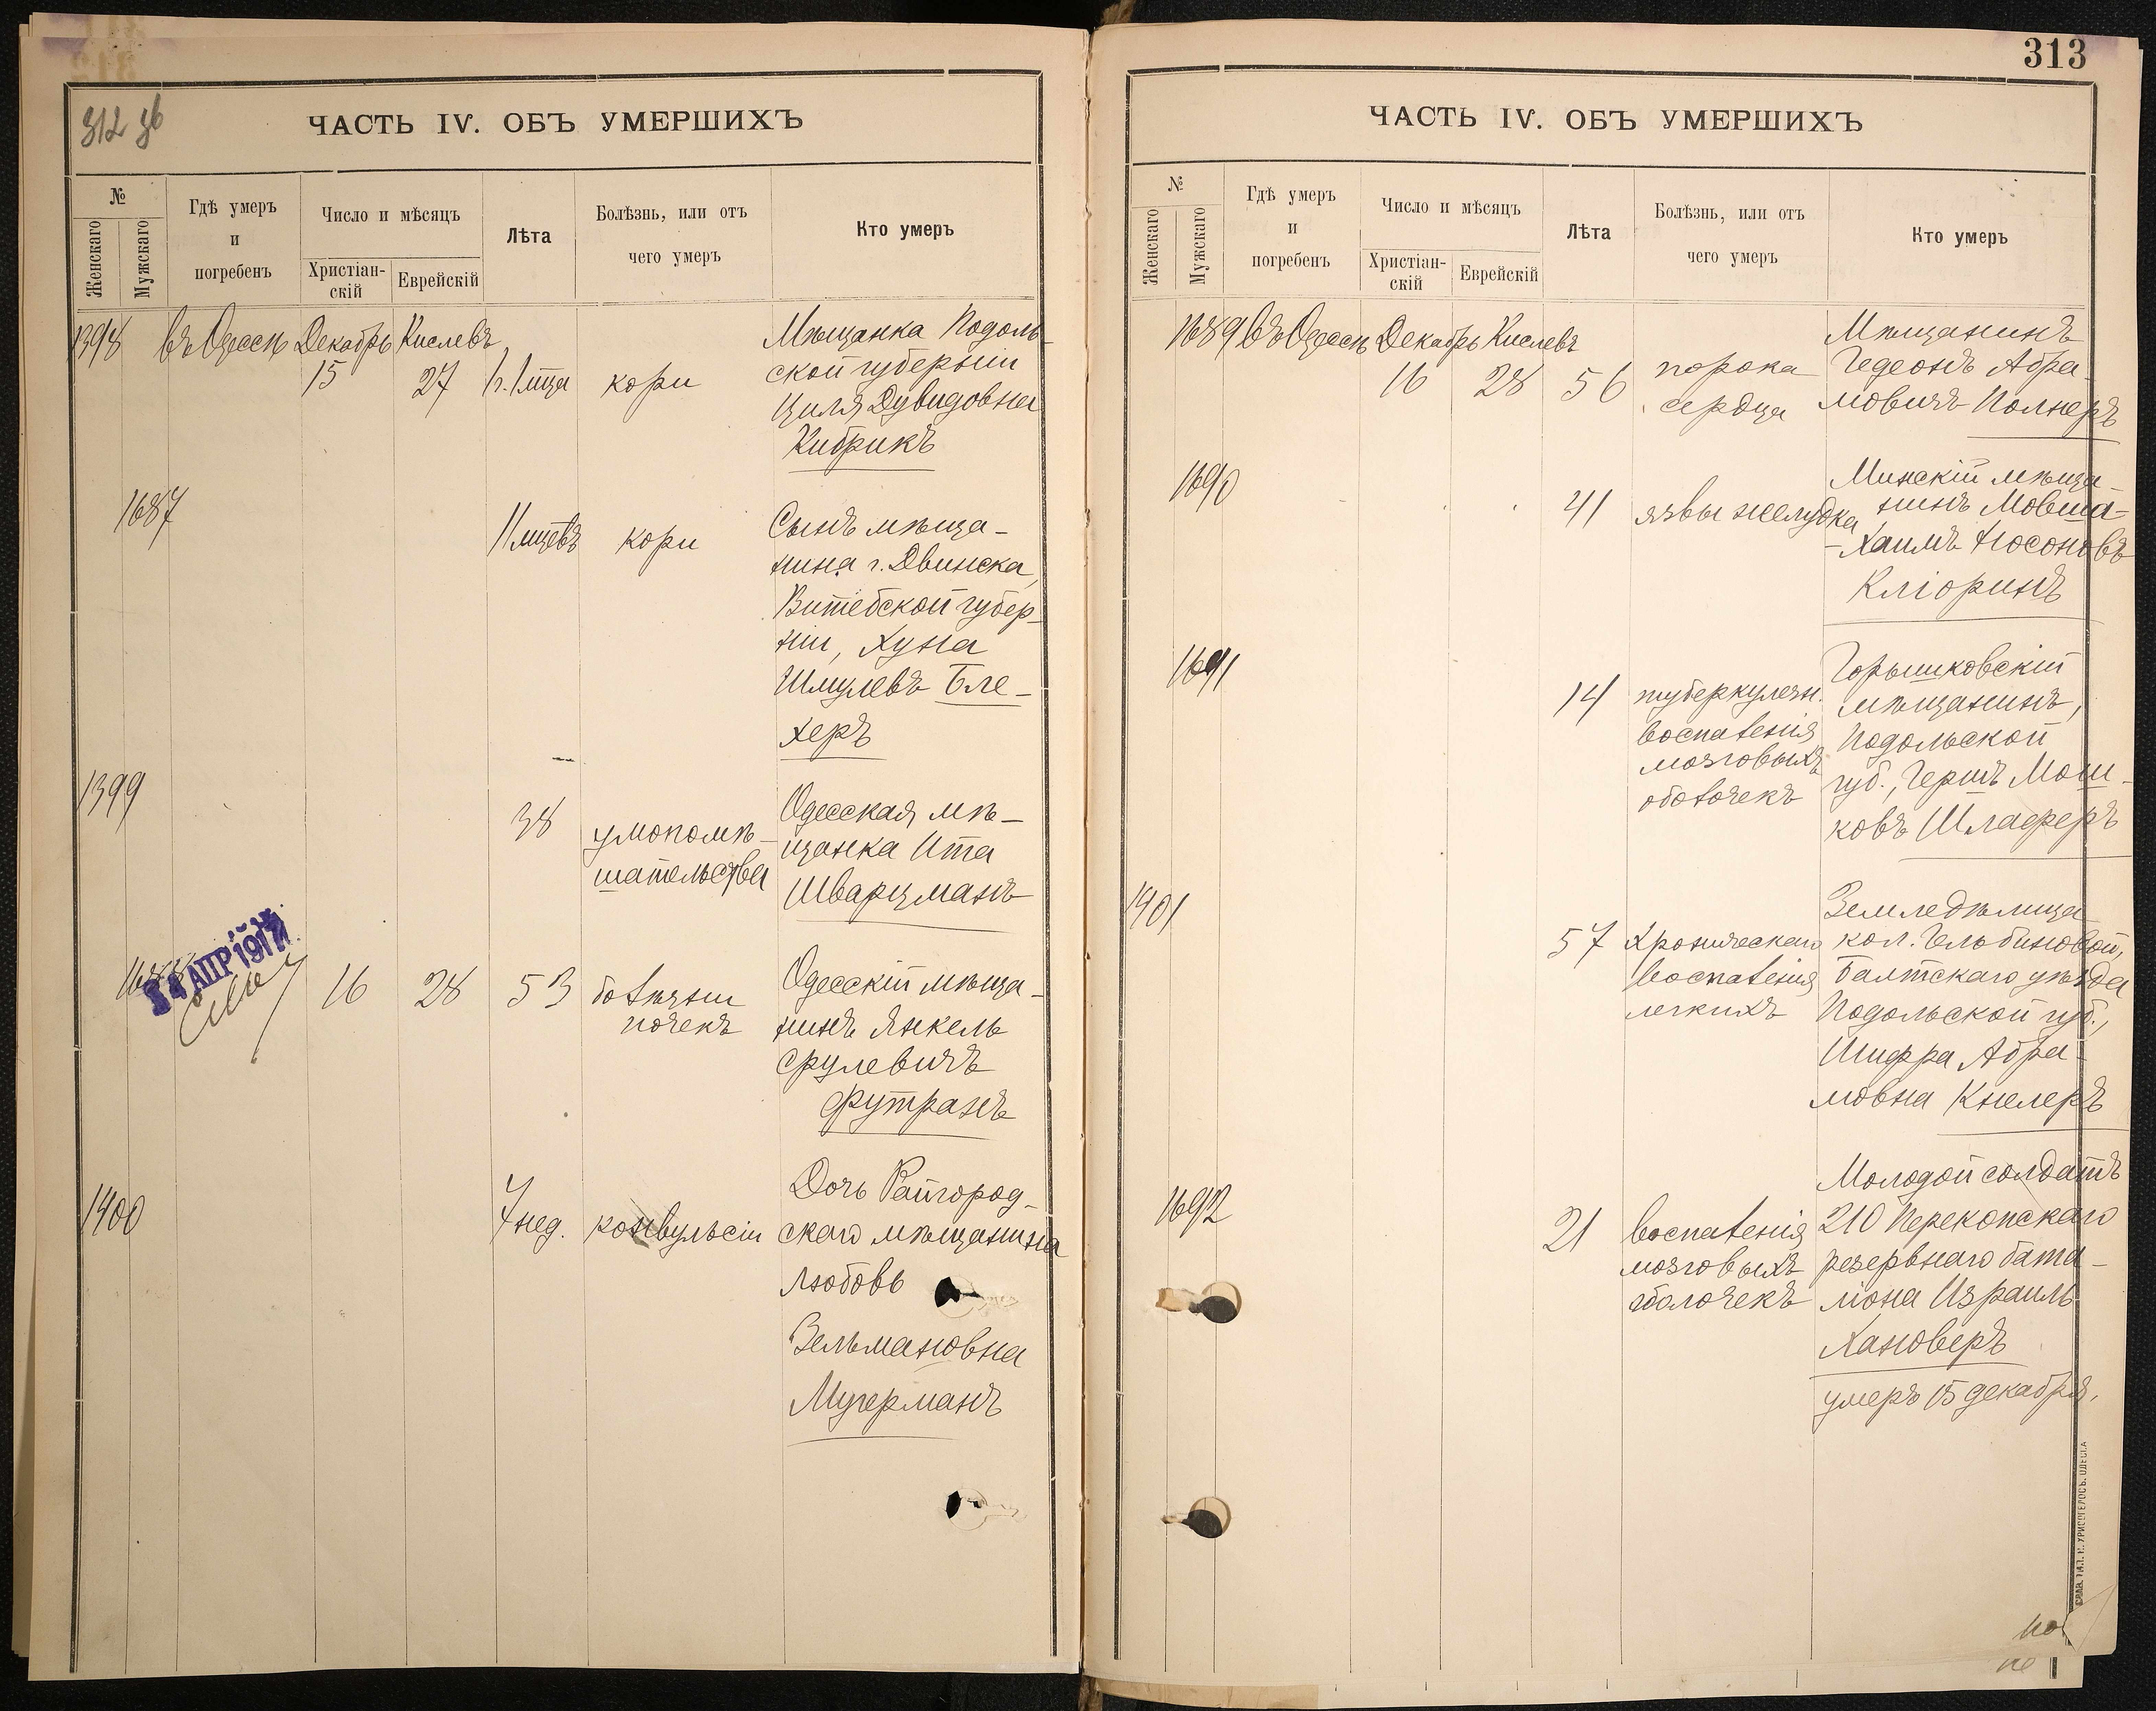 312 об
ЧАСТЬ IV. ОБЪ УМЕРШИХЪ
№
Женскаго
Мужскаго
Гдѣ умеръ
и
погребенъ
Число и мѣсяцъ
Христіан-
скій
Еврейскій
Лѣта
Болѣзнь, или отъ
чего умеръ
Кто умеръ
1398 въ Одессѣ Декабрь Кислевъ
15 27 1 г. 1 мца кори
Мѣщанка Подоль-
ской губерніи
Циля Дувидовна
Кибрикъ
1687
11 мцевъ кори
Сынъ мѣща-
нина г. Двинска,
Витебской губер-
ніи, Хуна
Шмулевъ Бле-
херъ
1399
38 умопомѣ-
шательства
Одесская мѣ-
щанка Ита
Шварцманъ
1688
АПР 1917
16 28 53 болѣзни
почекъ
Одесскій мѣща-
нинъ Янкель
Срулевичъ
Футранъ
1400
7 нед. конвульсіи
Дочь Райгород-
скаго мѣщанина
Любовь
Зельмановна
Мучерманъ
313
ЧАСТЬ IV. ОБЪ УМЕРШИХЪ
№
Женскаго
Мужскаго
Гдѣ умеръ
и
погребенъ
Число и мѣсяцъ
Христіан-
скій
Еврейскій
Лѣта
Болѣзнь, или отъ
чего умеръ
Кто умеръ
1689 въ Одессѣ Декабрь Кислевъ
16 28 56 порока
сердца
Мѣщанинъ
Гедеонъ Абра-
мовичъ Полнеръ
1690
41 язвы желудка
Минскій мѣща-
нинъ Мовша-
-Хаимъ Носоновъ
Кліоринъ
1691
14 туберкулезн.
воспаленія
мозговыхъ
оболочекъ
Горышковскій
мѣщанинъ,
Подольской
губ., Гершъ Мош-
ковъ Шлаферъ
1401
57 хроническаго
воспаленія
легкихъ
Земледѣлица
кол. Гельбиновой,
Балтскаго уѣзда
Подольской губ.,
Шифра Абра-
мовна Кнелеръ
1692
21 воспаленія
мозговыхъ
оболочекъ
Молодой солдатъ
210 Перекопскаго
резервнаго бата-
ліона Израиль
Хановеръ
умеръ 15 декабря.